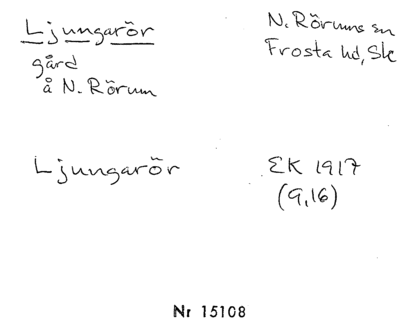 Ljungarör
gård
å N. Rörum
N. Rörums sn
Frosta hd, Sk
Ljungarör
EK 1917
(9,16)
Nr 15108